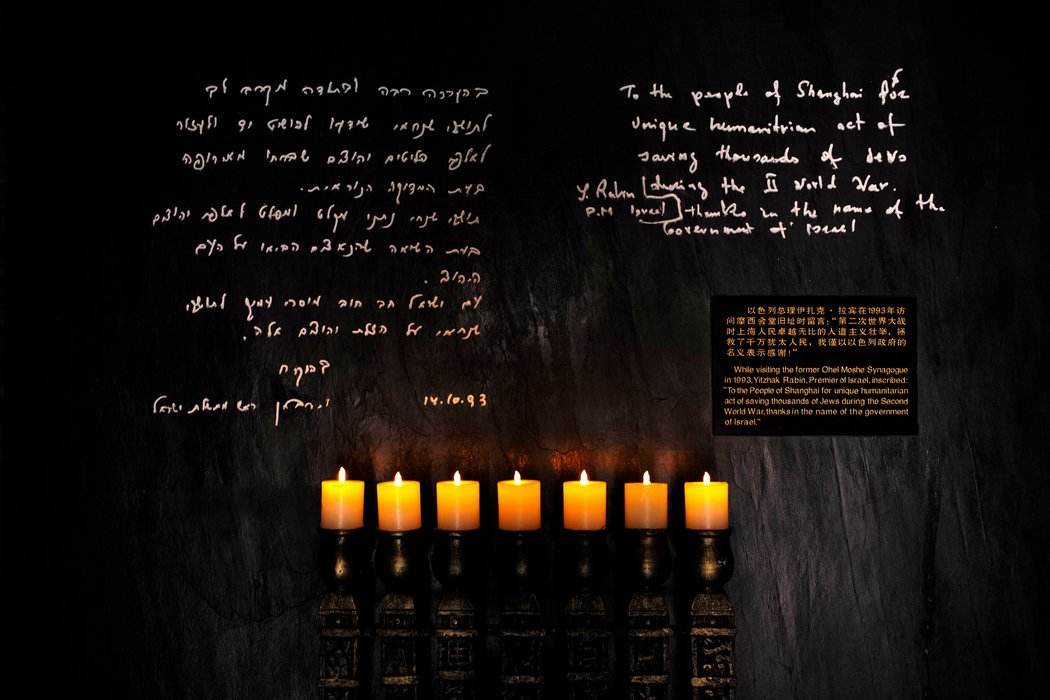 בהוקרה רבה ובתודה מקרב לב
לתושבי שנחאי שידעו להושיט יד ולעזור
לאלפי פליטים יהודים שברחו מאירופה
בעת המצוקה הנוראית.
תושבי שנחאי נתנו מקלט ומפלט לאלפי יהודים
בעת השואה שהנאצים הביאו על העם
היהודי.
עם ישראל חב חוב מוסרי עמוק לתושבי
שנחאי על הצלת יהודים אלה.
י. רבין ראש ממשלת ישראל 14.10.93
To the people of Shanghai for
unique humanitrian act of
saving thousands of Jews
during the II World War.
thanks in the name of the
Government of Israel
Y. Rabin
P.M Israel
以色列总理伊扎克·拉宾在1993年访
问摩西会堂旧址时留言:“第二次世界大战
时上海人民卓越无比的人道主义壮举,拯
救了千万犹太人民,我谨以以色列政府的
名义表示感谢!”
While visiting the former Ohel Moshe Synagogue
in 1993,Yitzhak Rabin, Premier of Israel, inscribed:
"To the People of Shanghai for unique humanitarian
act of saving thousands of Jews during the Second
World War, thanks in the name of the government
of Israel."